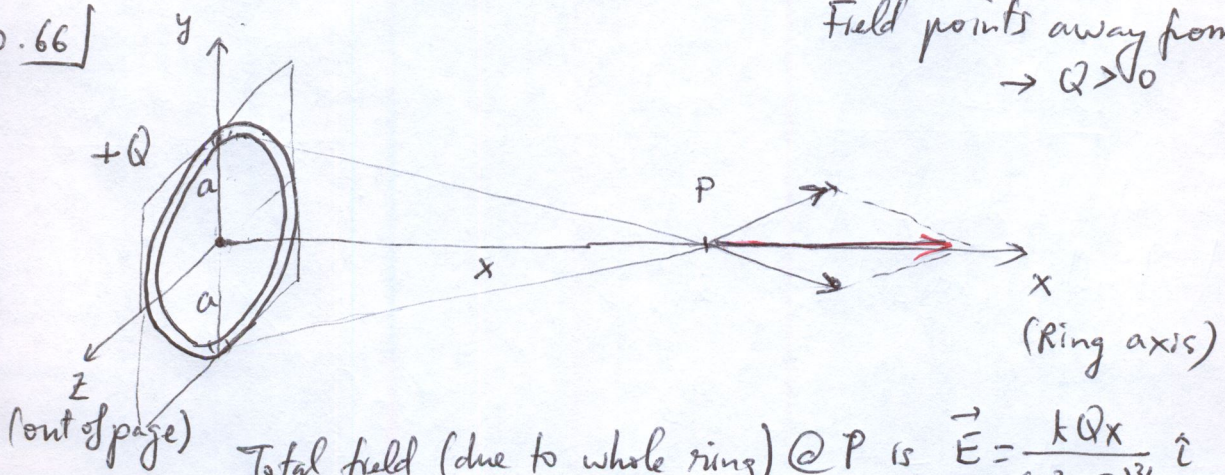 .66
Field points away from
→ Q > 0
y
+Q
a
P
x
a
x
(Ring axis)
z
(out of page)
Total field (due to whole ring) @ P is E⃗ = kQx î